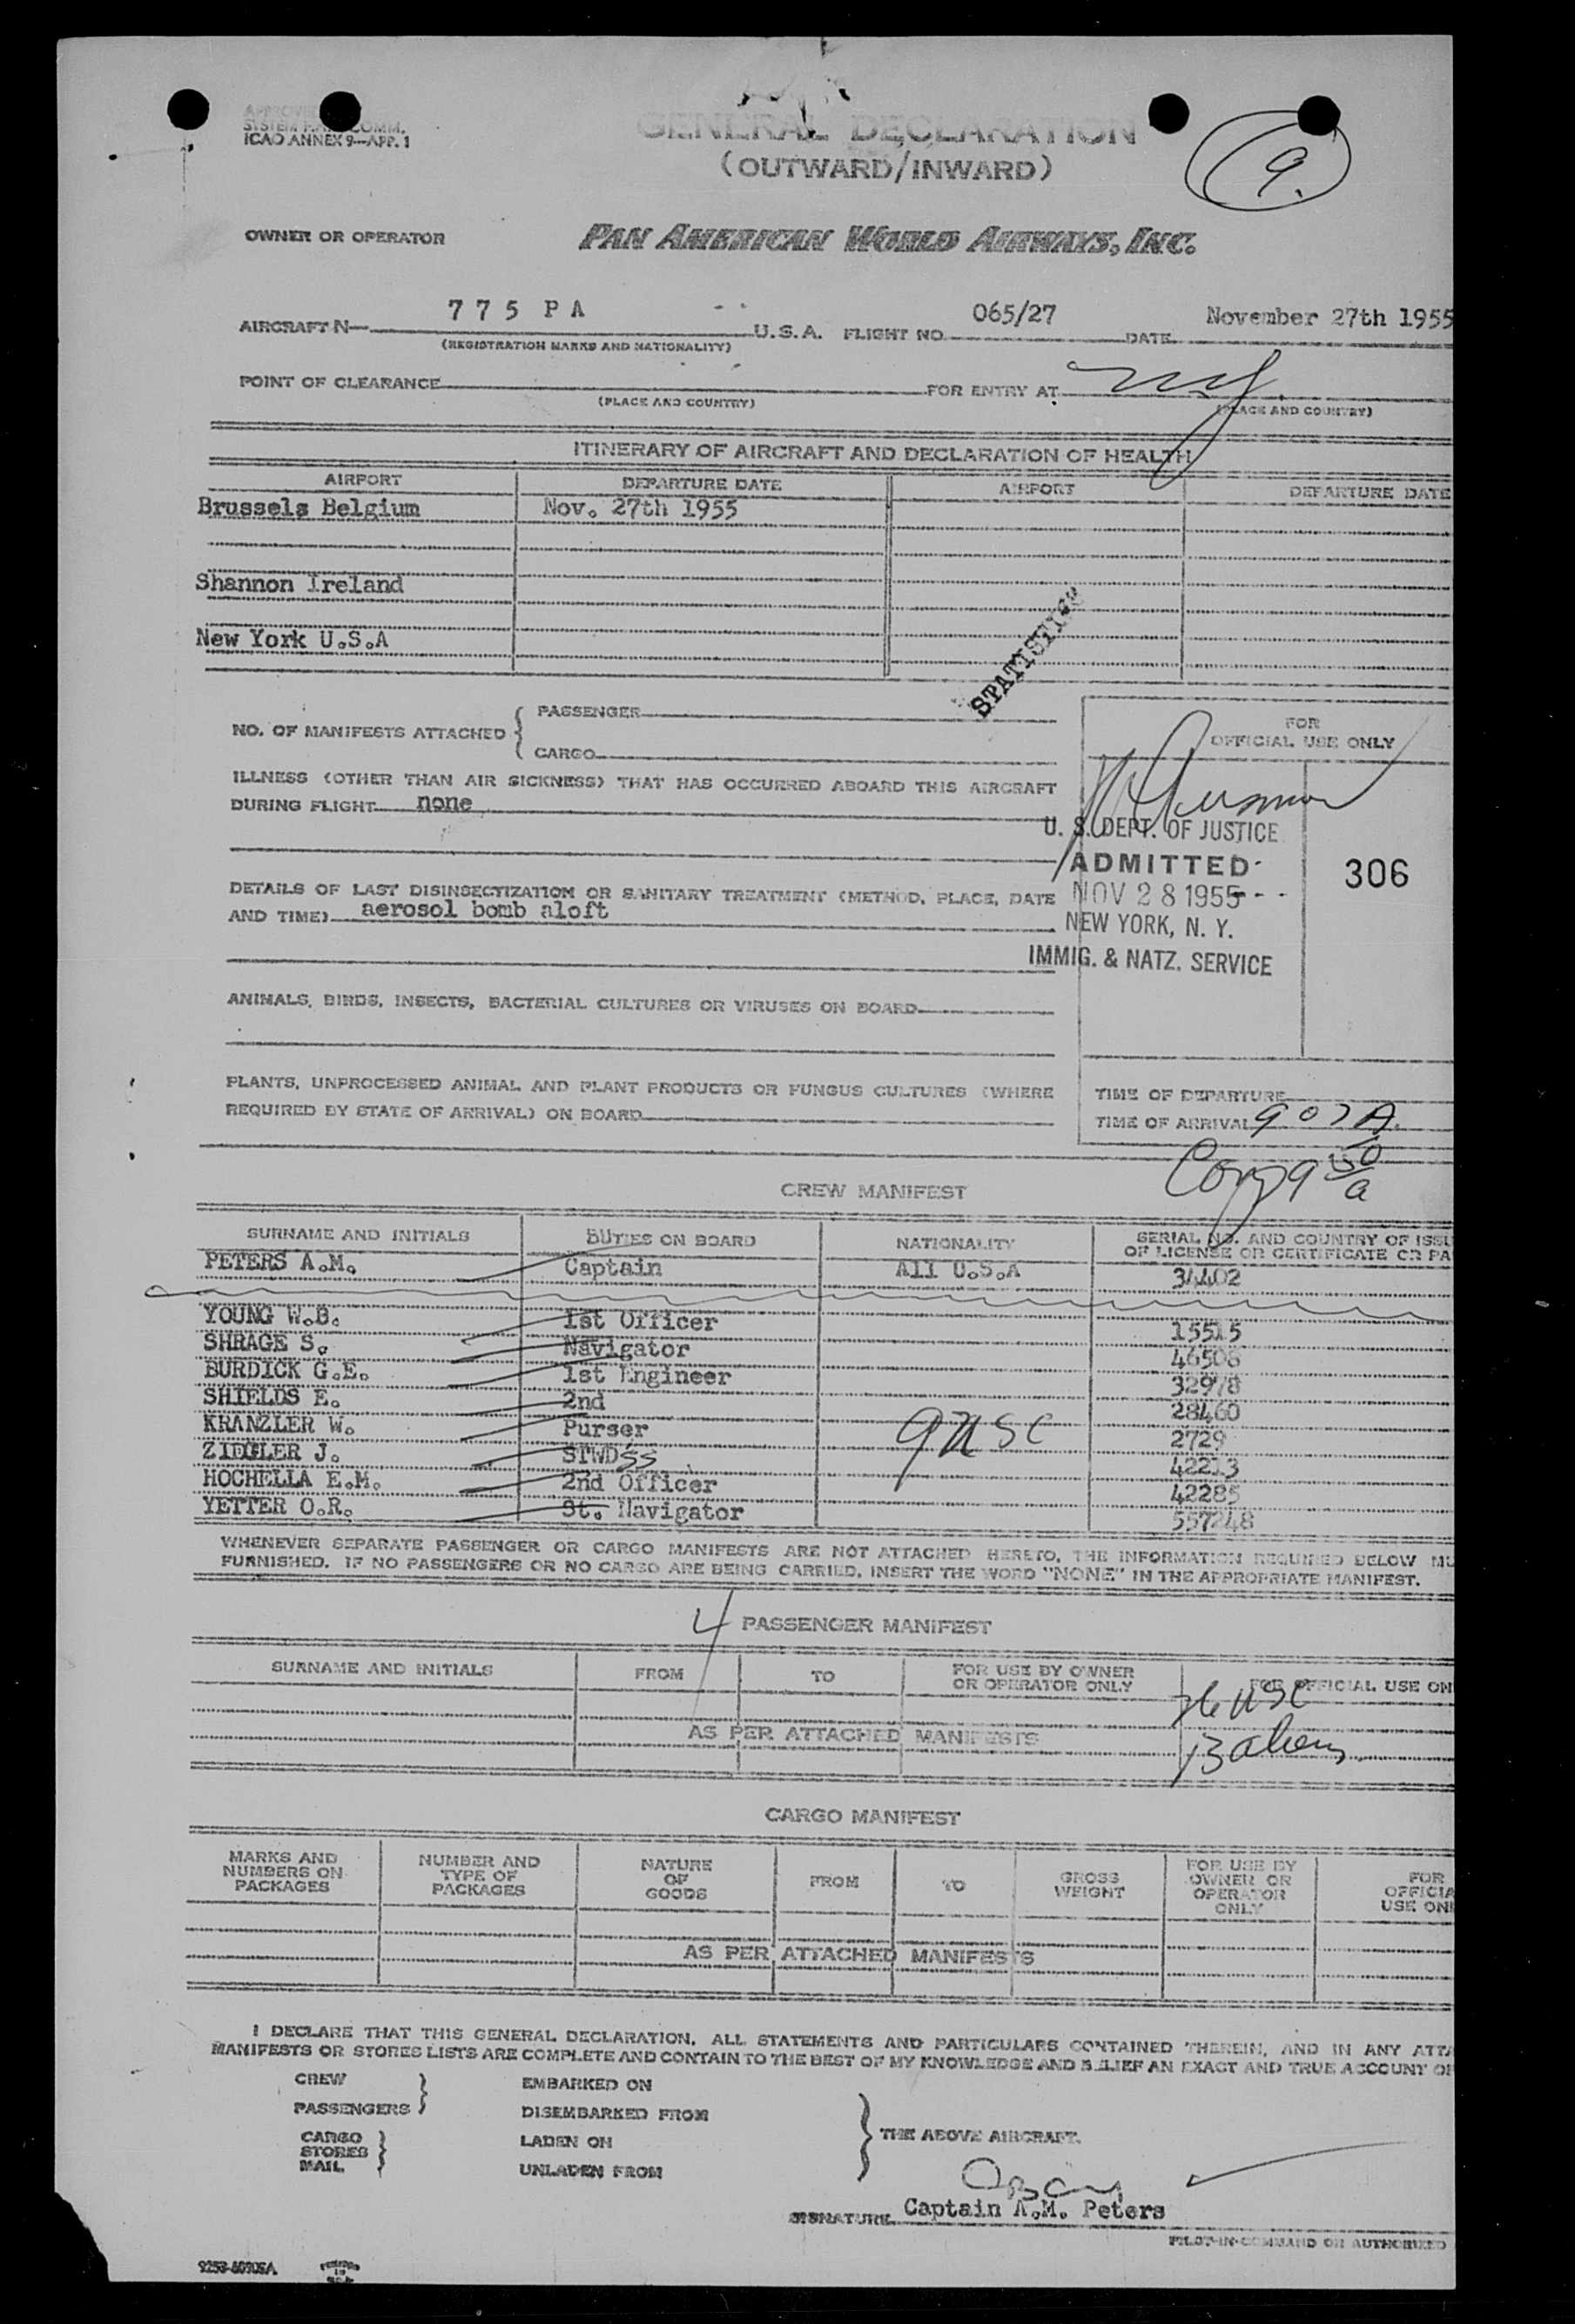 ICAO ANNEX 9—APP. 1
GENERAL DECLARATION
(OUTWARD/INWARD)
9.
OWNER OR OPERATOR
PAN AMERICAN WORLD AIRWAYS, INC.
AIRCRAFT N— 775 PA U.S.A. FLIGHT NO. 065/27 DATE November 27th 1955
(REGISTRATION MARKS AND NATIONALITY)
POINT OF CLEARANCE FOR ENTRY AT NY
(PLACE AND COUNTRY) (PLACE AND COUNTRY)
ITINERARY OF AIRCRAFT AND DECLARATION OF HEALTH
AIRPORT DEPARTURE DATE AIRPORT DEPARTURE DATE
Brussels Belgium Nov. 27th 1955
Shannon Ireland
New York U.S.A
STATISTICS
NO. OF MANIFESTS ATTACHED { PASSENGER
CARGO
FOR
OFFICIAL USE ONLY
ILLNESS (OTHER THAN AIR SICKNESS) THAT HAS OCCURRED ABOARD THIS AIRCRAFT
DURING FLIGHT none
U. S. DEPT. OF JUSTICE
ADMITTED
NOV 28 1955
NEW YORK, N. Y.
IMMIG. & NATZ. SERVICE
306
DETAILS OF LAST DISINSECTIZATION OR SANITARY TREATMENT (METHOD, PLACE, DATE
AND TIME) aerosol bomb aloft
ANIMALS, BIRDS, INSECTS, BACTERIAL CULTURES OR VIRUSES ON BOARD
PLANTS, UNPROCESSED ANIMAL AND PLANT PRODUCTS OR FUNGUS CULTURES (WHERE
REQUIRED BY STATE OF ARRIVAL) ON BOARD
TIME OF DEPARTURE
TIME OF ARRIVAL 907 A.
CREW MANIFEST
SURNAME AND INITIALS DUTIES ON BOARD NATIONALITY SERIAL NO. AND COUNTRY OF ISSU
OF LICENSE OR CERTIFICATE OR PA
PETERS A.M. Captain All U.S.A 34402
YOUNG W.B. 1st Officer 15515
SHRAGE S. Navigator 46508
BURDICK G.E. 1st Engineer 32978
SHIELDS E. 2nd 28460
KRANZLER W. Purser 2729
ZIEGLER J. STWDSS 42213
HOCHELLA E.M. 2nd Officer 42285
YETTER O.R. St. Navigator 557248
9 USC
WHENEVER SEPARATE PASSENGER OR CARGO MANIFESTS ARE NOT ATTACHED HERETO, THE INFORMATION REQUIRED BELOW MU
FURNISHED. IF NO PASSENGERS OR NO CARGO ARE BEING CARRIED, INSERT THE WORD "NONE" IN THE APPROPRIATE MANIFEST.
4 PASSENGER MANIFEST
SURNAME AND INITIALS FROM TO FOR USE BY OWNER
OR OPERATOR ONLY FOR OFFICIAL USE ON
USC
AS PER ATTACHED MANIFESTS
CARGO MANIFEST
MARKS AND
NUMBERS ON
PACKAGES
NUMBER AND
TYPE OF
PACKAGES
NATURE
OF
GOODS
FROM
TO
GROSS
WEIGHT
FOR USE BY
OWNER OR
OPERATOR
ONLY
FOR
OFFICIA
USE ON
AS PER ATTACHED MANIFESTS
I DECLARE THAT THIS GENERAL DECLARATION, ALL STATEMENTS AND PARTICULARS CONTAINED THEREIN, AND IN ANY ATTA
MANIFESTS OR STORES LISTS ARE COMPLETE AND CONTAIN TO THE BEST OF MY KNOWLEDGE AND BELIEF AN EXACT AND TRUE ACCOUNT OF
CREW
PASSENGERS
CARGO
STORES
MAIL
EMBARKED ON
DISEMBARKED FROM
LADEN ON
UNLADEN FROM
THE ABOVE AIRCRAFT.
SIGNATURE Captain A.M. Peters
PILOT-IN-COMMAND OR AUTHORIZED